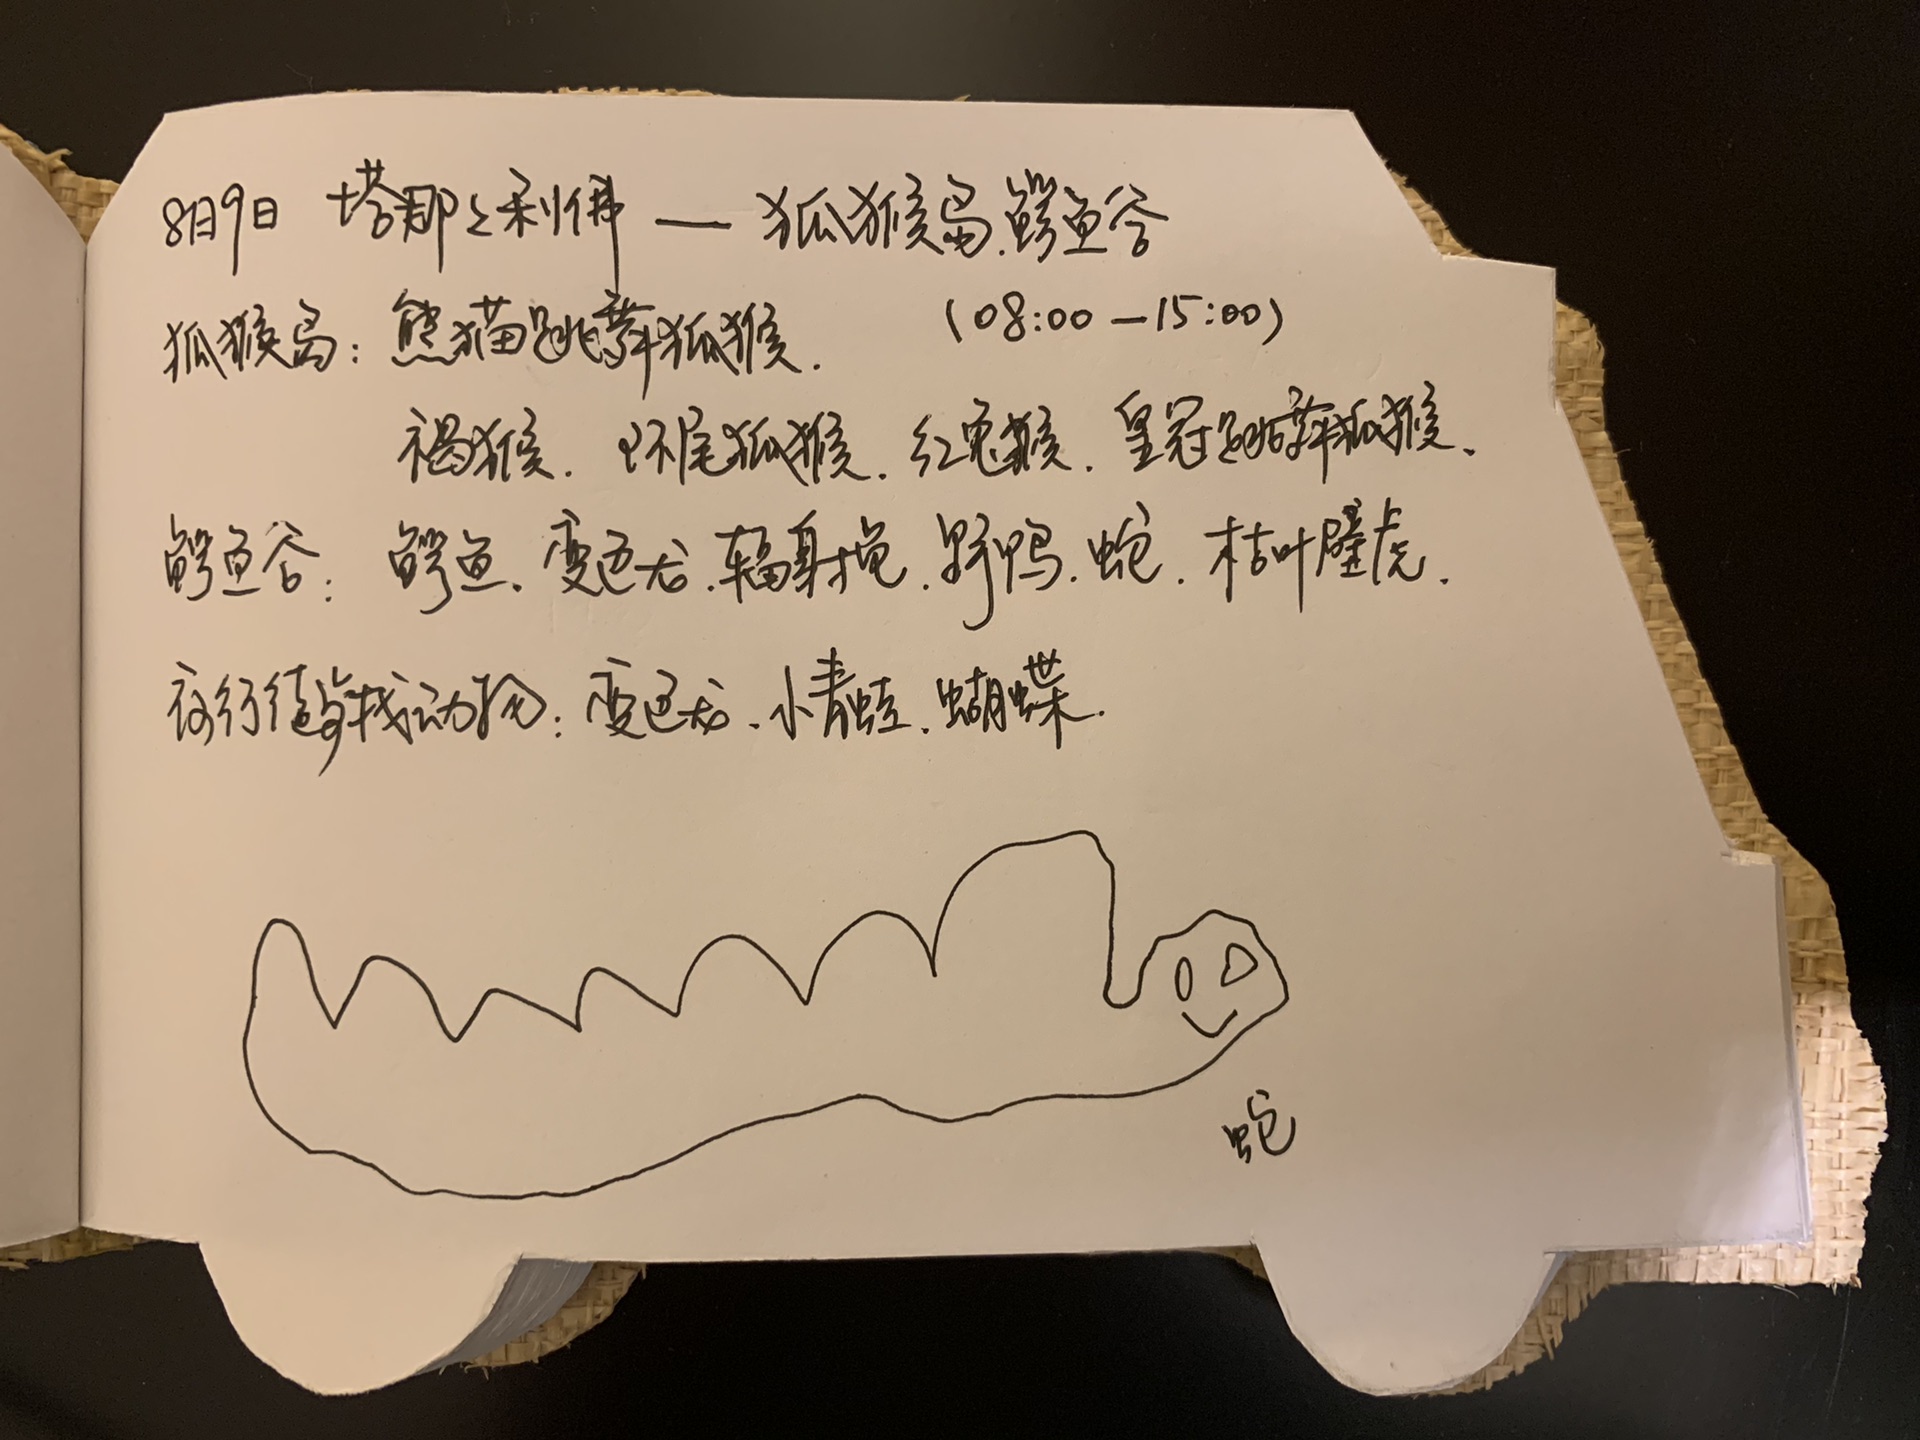 8月9日 塔那那利佛 — 狐猴岛.鳄鱼谷
(08:00 — 15:00)
狐猴岛: 熊猫跳舞狐猴.
褐猴. 环尾狐猴. 红兔猴. 皇冠跳舞狐猴.
鳄鱼谷: 鳄鱼. 变色龙. 辐射龟. 野鸭. 蛇. 枯叶壁虎.
夜行徒步找动物: 变色龙. 小青蛙. 蝴蝶.
蛇